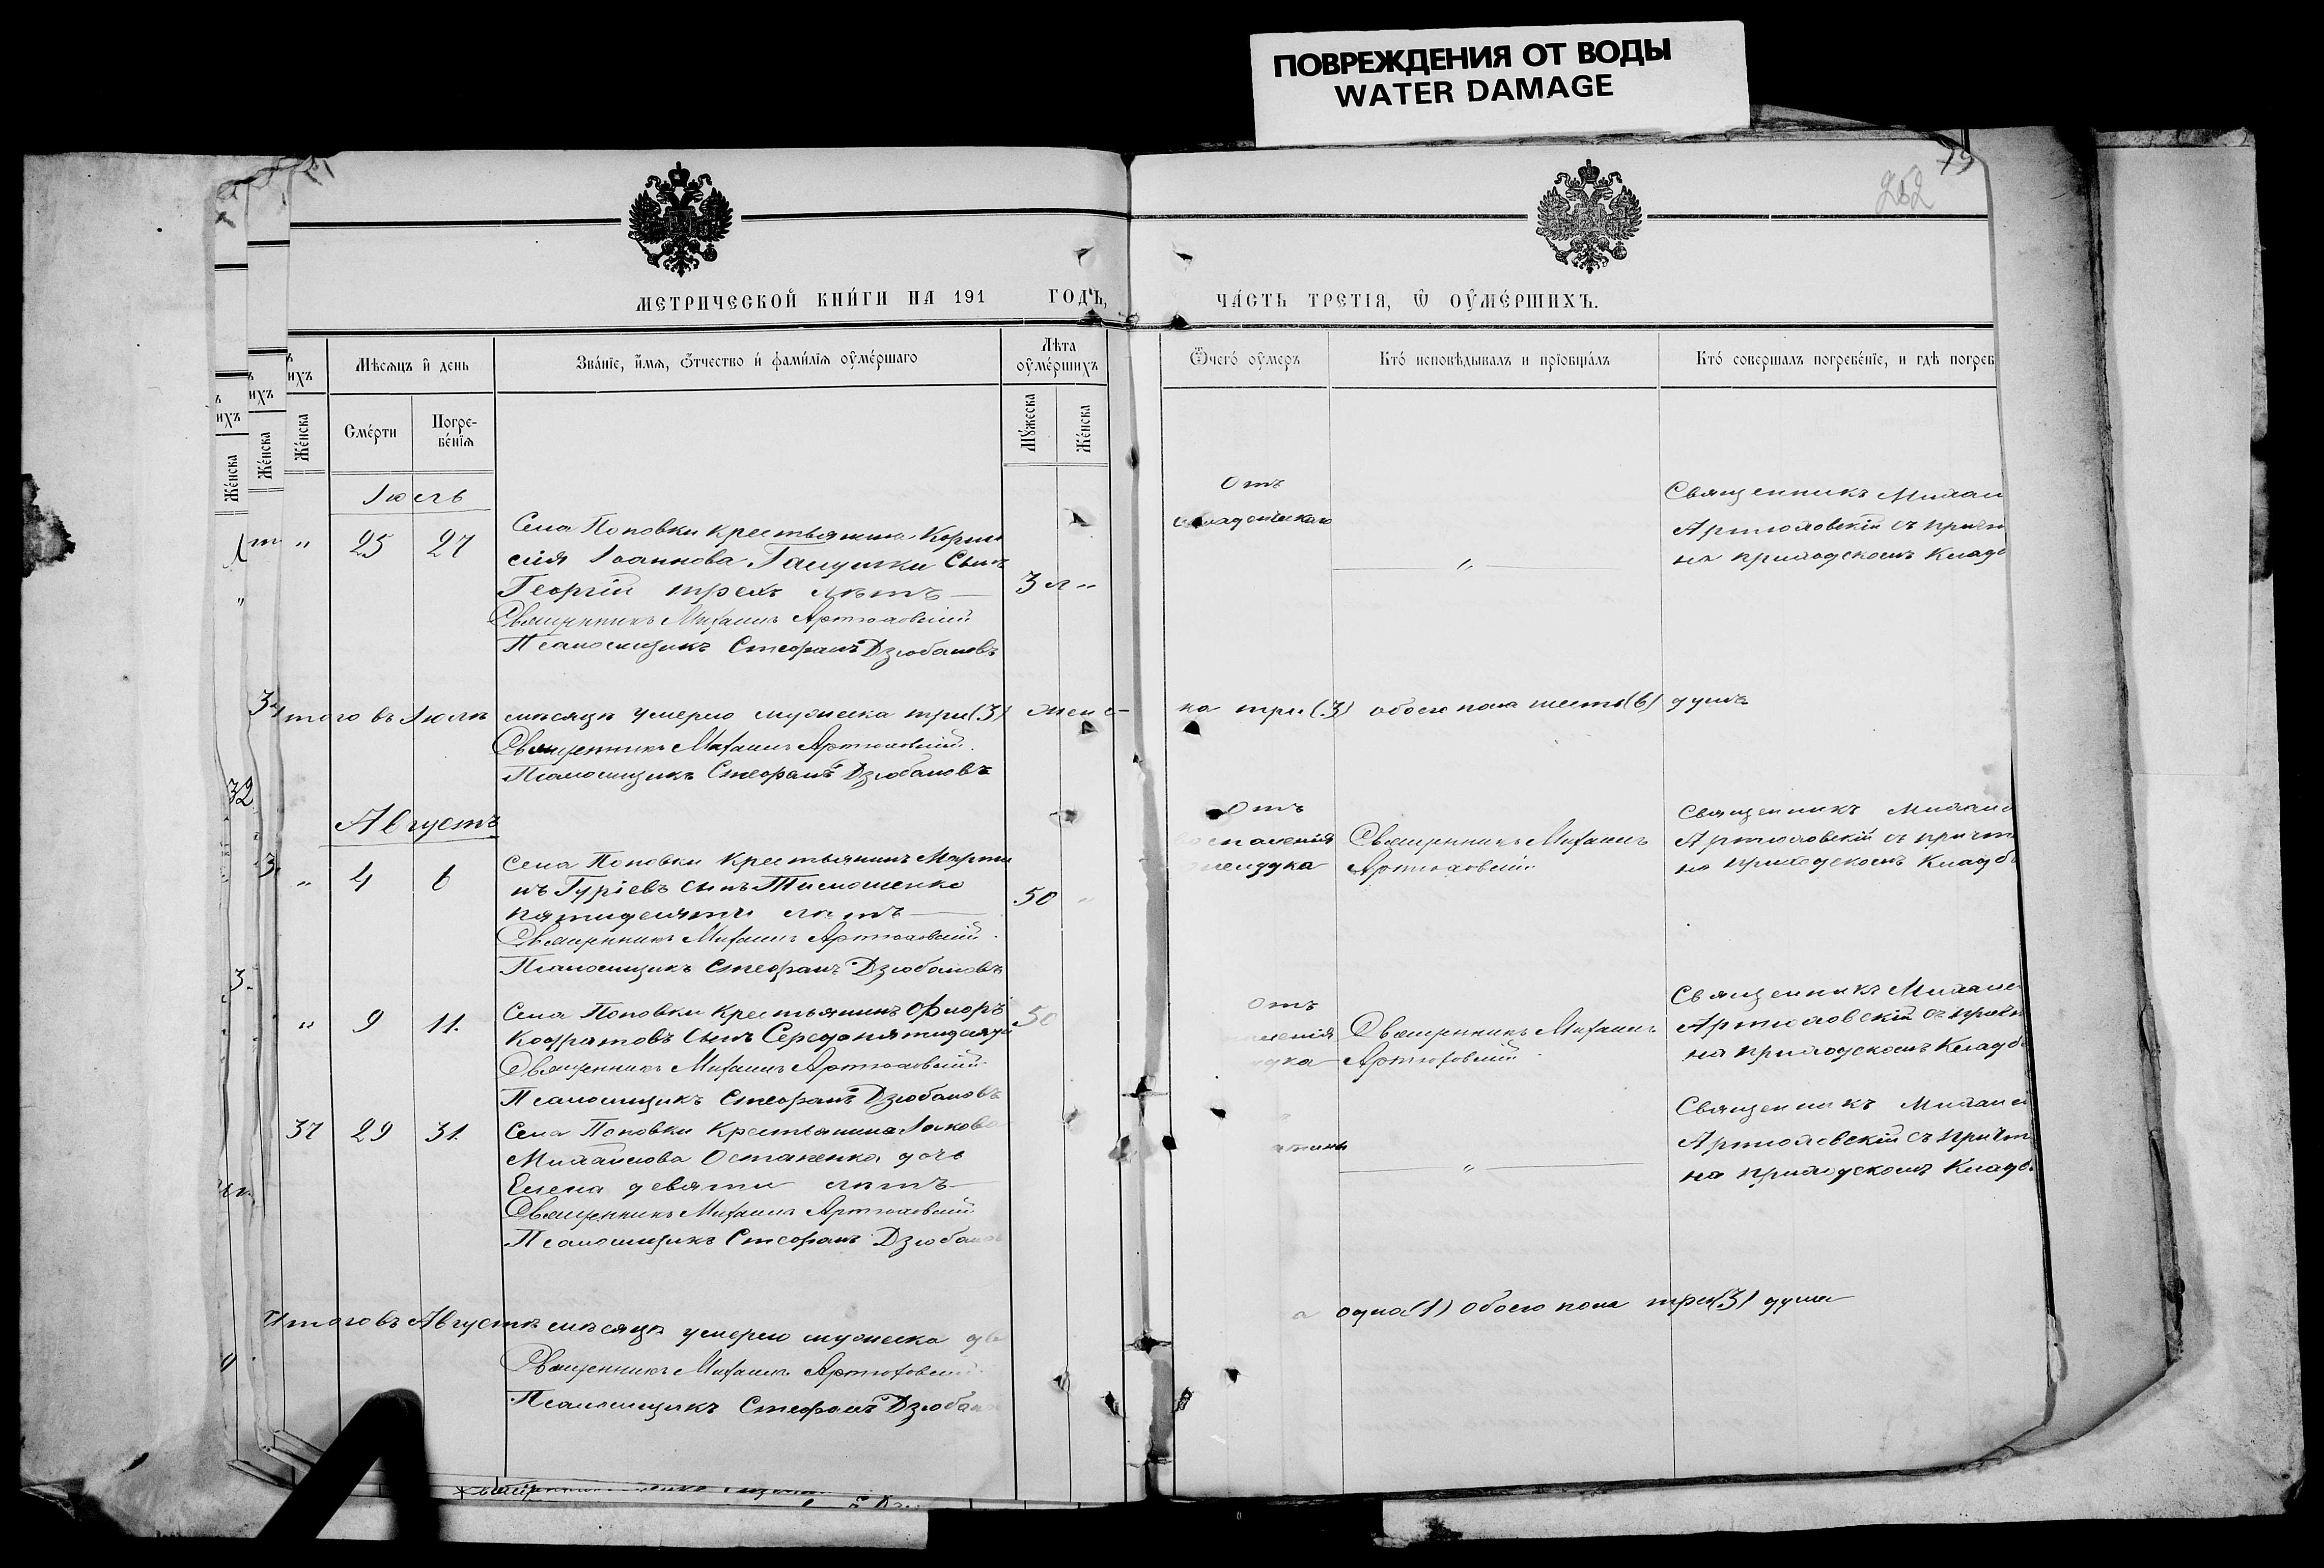 ПОВРЕЖДЕНИЯ ОТ ВОДЫ
WATER DAMAGE
252
МЕТРИЧЕСКОЙ КНИ́ГИ НА 191 ГОДЪ,
ЧА́СТЬ ТРЕТІЯ, Ѡ ОУМЕ́РШИХЪ.
Мѣсяцъ и день
Зва́ніе, и́мя, ѻ́тчество и́ фами́лія оуме́ршаго
Лѣта оуме́ршихъ
Ѿчегѡ́ оумеръ
Кто́ исповѣ́дывалъ и прїѡбща́лъ
Кто́ совершалъ погребе́нїе, и гдѣ погреб
Же́нска
Сме́рти
Погребе́нїя
Му́жеска
Же́нска
Іюль
" 25 27
Села Поповки крестьянина Корни
лія Іоаннова Галушки сынъ
Георгій трехъ лѣтъ
3 л "
Священникъ Михаилъ Артюховскій
Псаломщикъ Стефанъ Дзюбановъ
Отъ
"
Священникъ Михаи
Артюховскій съ причт
на приходскомъ кладб
Итого въ Іюлѣ мѣсяцѣ умерло мужеска три (3) женс-
ка три (3) обоего пола шесть (6) душъ
Священникъ Михаилъ Артюховскій
Псаломщикъ Стефанъ Дзюбановъ
Августъ
" 4 6
Села Поповки крестьянинъ Марти
нъ Гуріевъ сынъ Тимошенко
пятидесяти лѣтъ
50 "
Священникъ Михаилъ Артюховскій
Псаломщикъ Стефанъ Дзюбановъ
Отъ
воспаленія
желудка
Священникъ Михаилъ
Артюховскій
Священникъ Михаил
Артюховскій съ причт
на приходскомъ кладб
" 9 11.
Села Поповки крестьянинъ Флоръ
Кодратовъ сынъ Середа пятидесяти
50
Священникъ Михаилъ Артюховскій
Псаломщикъ Стефанъ Дзюбановъ
Отъ
Священникъ Михаилъ
Артюховскій
Священникъ Михаил
Артюховскій съ причт
на приходскомъ кладб
37 29 31.
Села Поповки крестьянина Іакова
Михайлова Остапенка дочь
Елена девяти лѣтъ
Священникъ Михаилъ Артюховскій
Псаломщикъ Стефанъ Дзюбанов
"
Священникъ Михаил
Артюховскій съ причт
на приходскомъ кладб
Итого въ Августѣ мѣсяцѣ умерло мужеска дв
а одна (1) обоего пола три (3) души
Священникъ Михаилъ Артюховскій
Псаломщикъ Стефанъ Дзюбан